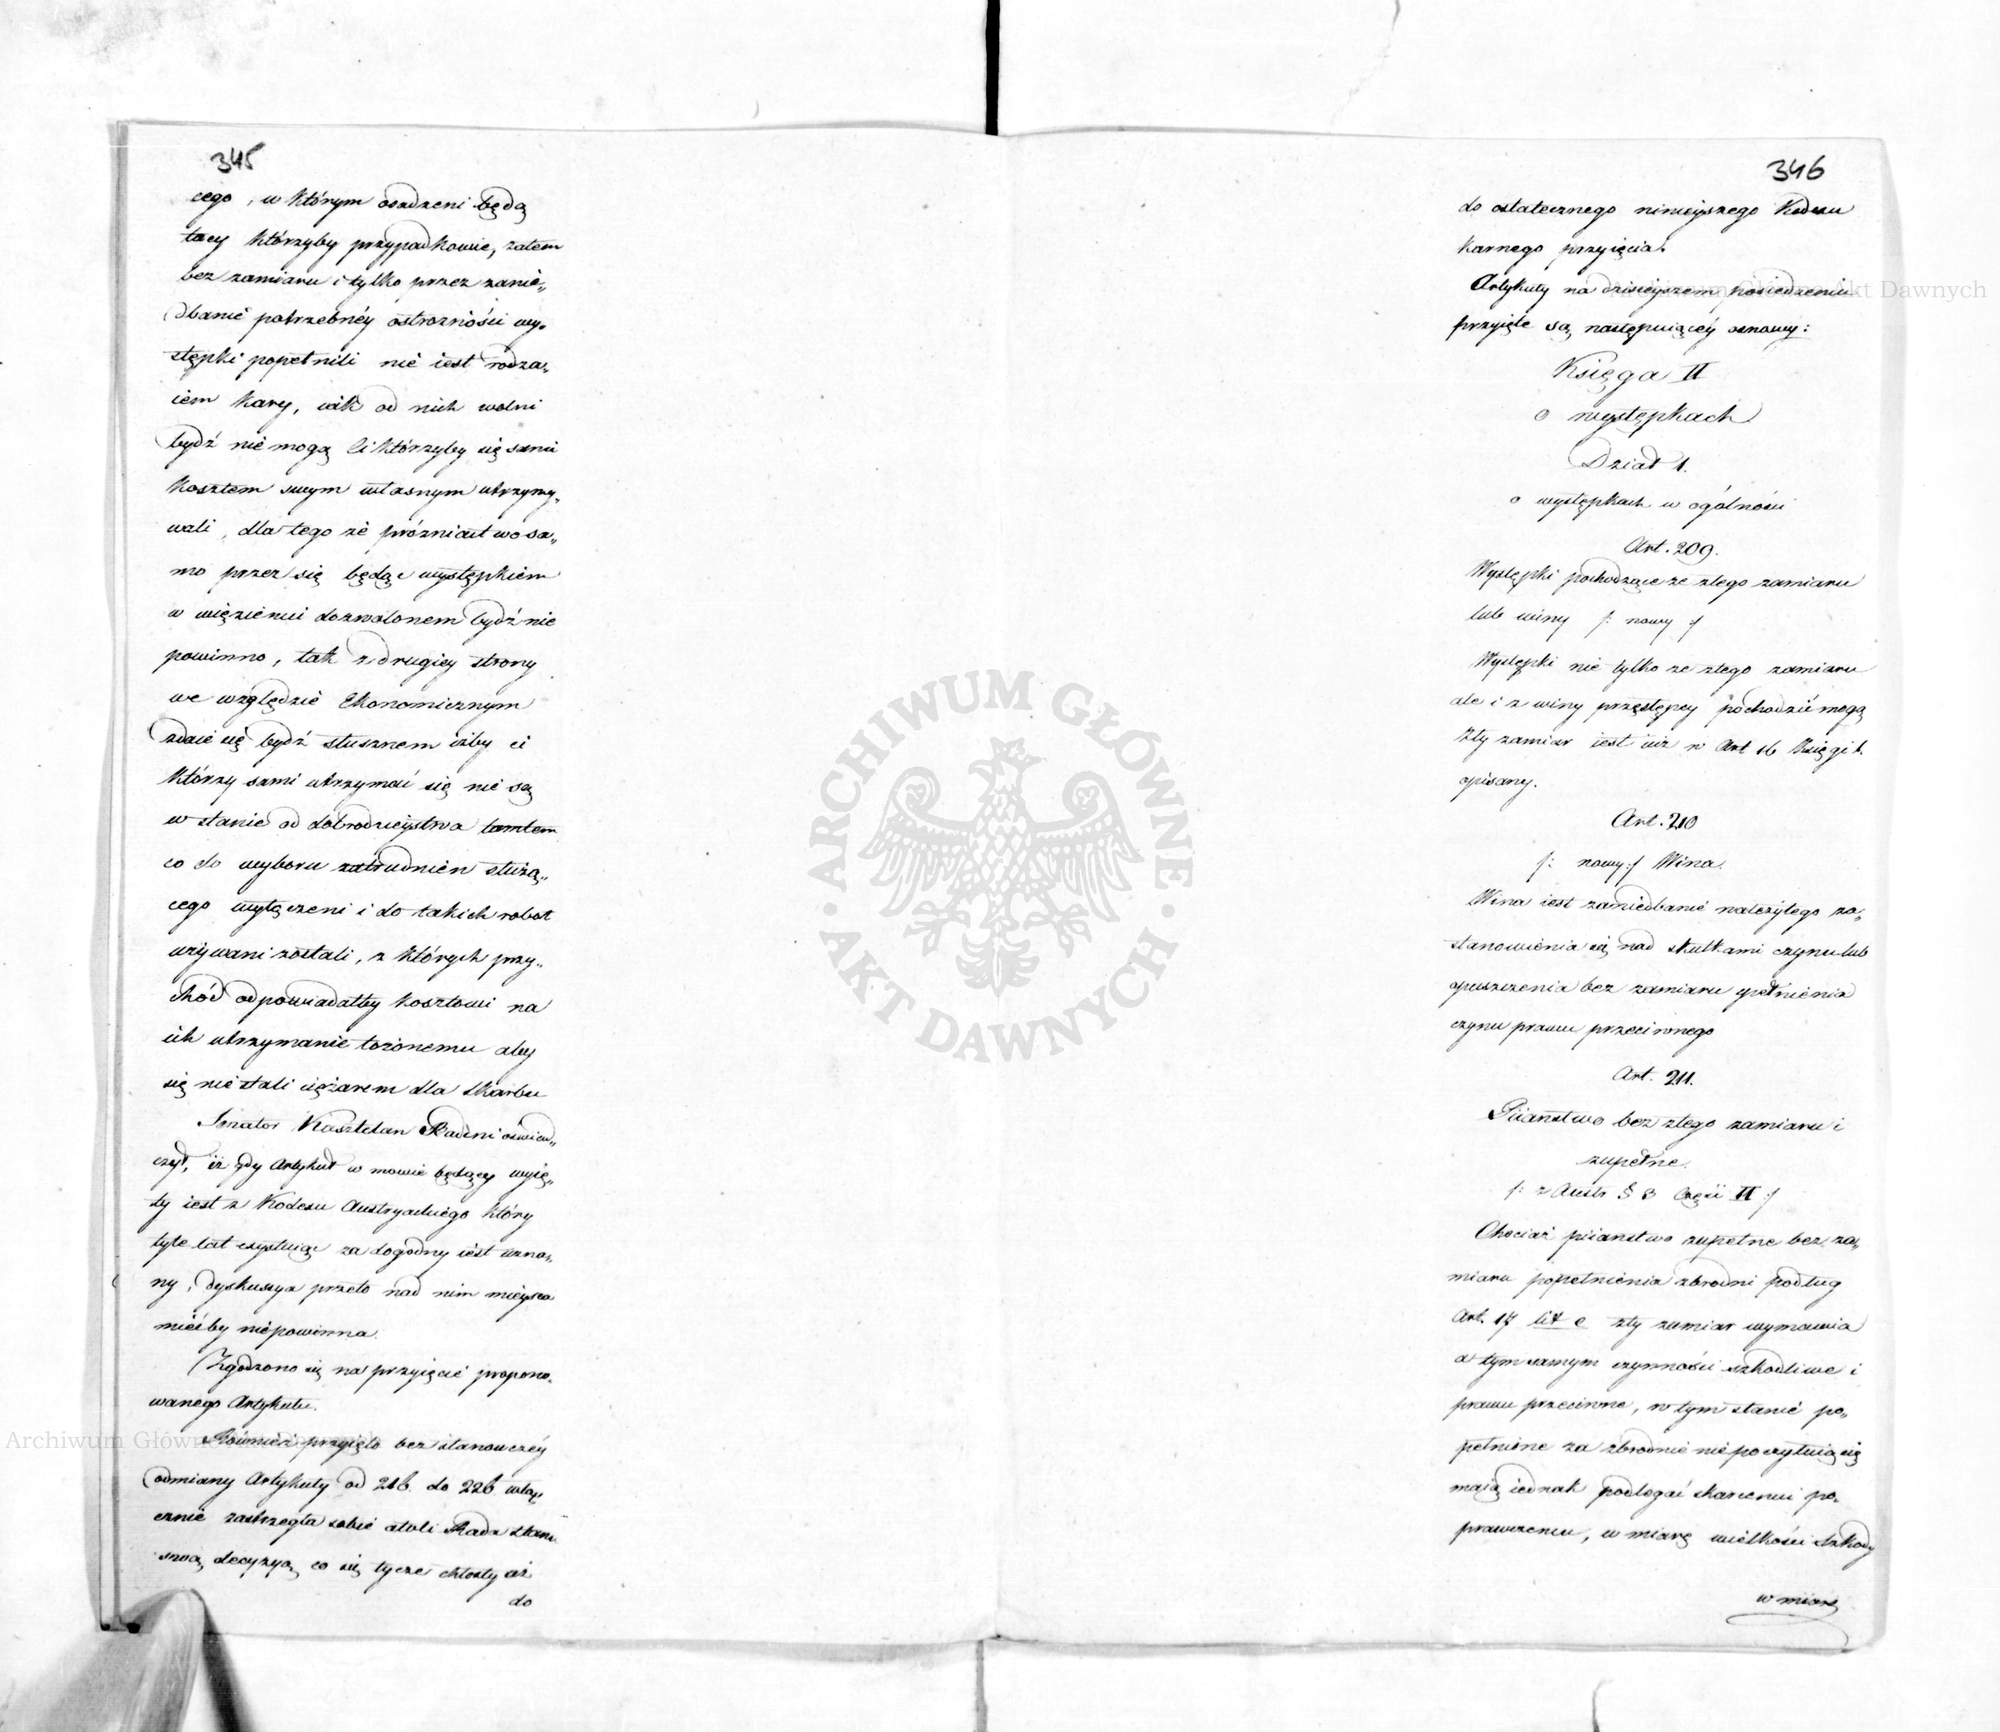 345
cego, w którym osadzeni będą
tacy którzyby przypadkowie, zatem
bez zamiaru i tylko przez zanie„
dbanie potrzebnéy ostrożności wy„
stępki popełnili nie iest rodza„
iem kary, iak od nich wolni
bydź nie mogą Ci którzyby się sami
kosztem swym własnym utrzymy„
wali, dla tego że próżniactwo sa„
mo przez się będąc występkiem
w więzieniu dozwolonem bydź nie
powinno, tak z drugiey strony
we względzie Ekonomicznym
zdaie się bydź słusznem iżby ci
którzy sami utrzymać się nie są
w stanie od dobrodzieystwa tamtem
co do wyboru zatrudnień służą„
cego wyłączeni i do takich robot
używani zostali, z których przy„
chód odpowiadałby kosztowi na
ich utrzymanie łożonemu aby
się nie stali ciężarem dla skarbu
Senator Kasztelan oświad„
czył, iż gdy Artykuł w mowie będący wyię„
ty iest z Kodexu Austryackiego który
tyle lat exystuiąc za dogodny iest uzna„
ny, dyskussya przeto nad nim mieysca
miećby niepowinna.
Zgodzono się na przyięcie propono„
wanego Artykułu.
Również przyięto bez stanowczéy
odmiany Artykuły od 216. do 226 włą„
cznie zastrzegła sobie atoli Rada Stanu
swoą decyzyą co się tycze chłosty aż
do
346
do ostatecznego ninieyszego Kodexu
karnego przyięcia.
Artykuły na dzisieyszem posiedzeniu
przyięte są następuiącéy osnowy:
Księga II
o występkach
Dział 1.
o występkach w ogólności
Art. 209.
Występki pochodzące ze złego zamiaru
lub winy /: nowy :/
Występki nie tylko ze złego zamiaru
ale i z winy przestępcy pochodzić mogą
Zły zamiar iest iuż w Art 16 Księgi 1.
opisany.
Art. 210
/: nowy :/ Wina.
Wina iest zaniedbanie należytego za„
stanowienia się nad skutkami czynu lub
opuszczenia bez zamiaru spełnienia
czynu prawu przeciwnego
Art. 211.
Piianstwo bez złego zamiaru i
zupełne.
/: z Austr § 3 Części II :/
Chociaż piianstwo zupełne bez za„
miaru popełnienia zbrodni podług
Art. 17 lit c zły zamiar wymawia
a tym samym czynności szkodliwe i
prawu przeciwne, w tym stanie po„
pełnione za zbrodnie nie poczytuią się
maią iednak podlegać skarceniu po„
prawczemu, w miarę wielkości szkody
w miarę
Archiwum Główne Akt Dawnych
ARCHIWUM GŁÓWNE
AKT DAWNYCH
Archiwum Główne Akt Dawnych